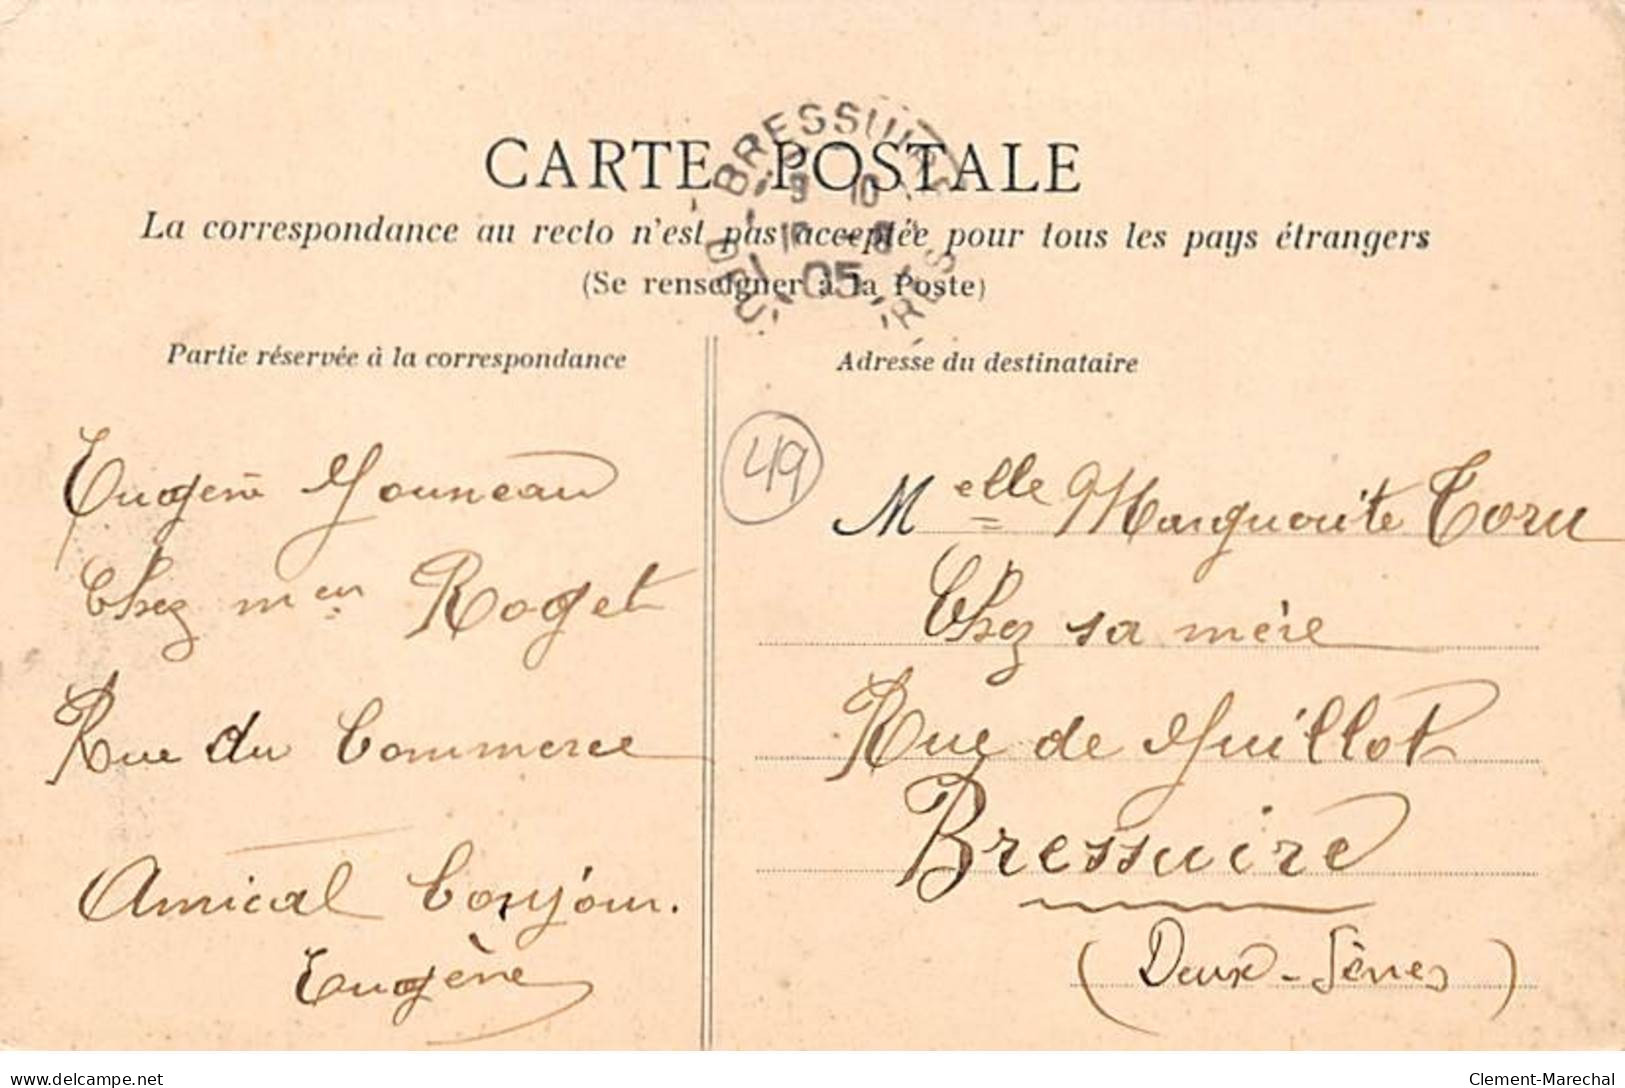 CARTE POSTALE
La correspondance au recto n'est pas acceptée pour tous les pays étrangers
(Se renseigner à la Poste)
BRESSUIRE
05
Partie réservée à la correspondance
Eugène
Chez mon Roget
Rue du Commerce
Amical bonjour.
Eugène
Adresse du destinataire
49
Melle Marguerite
Chez sa mère
Rue de
Bressuire
(Deux-Sèvres)
delcampe.net
Clement-Marechal